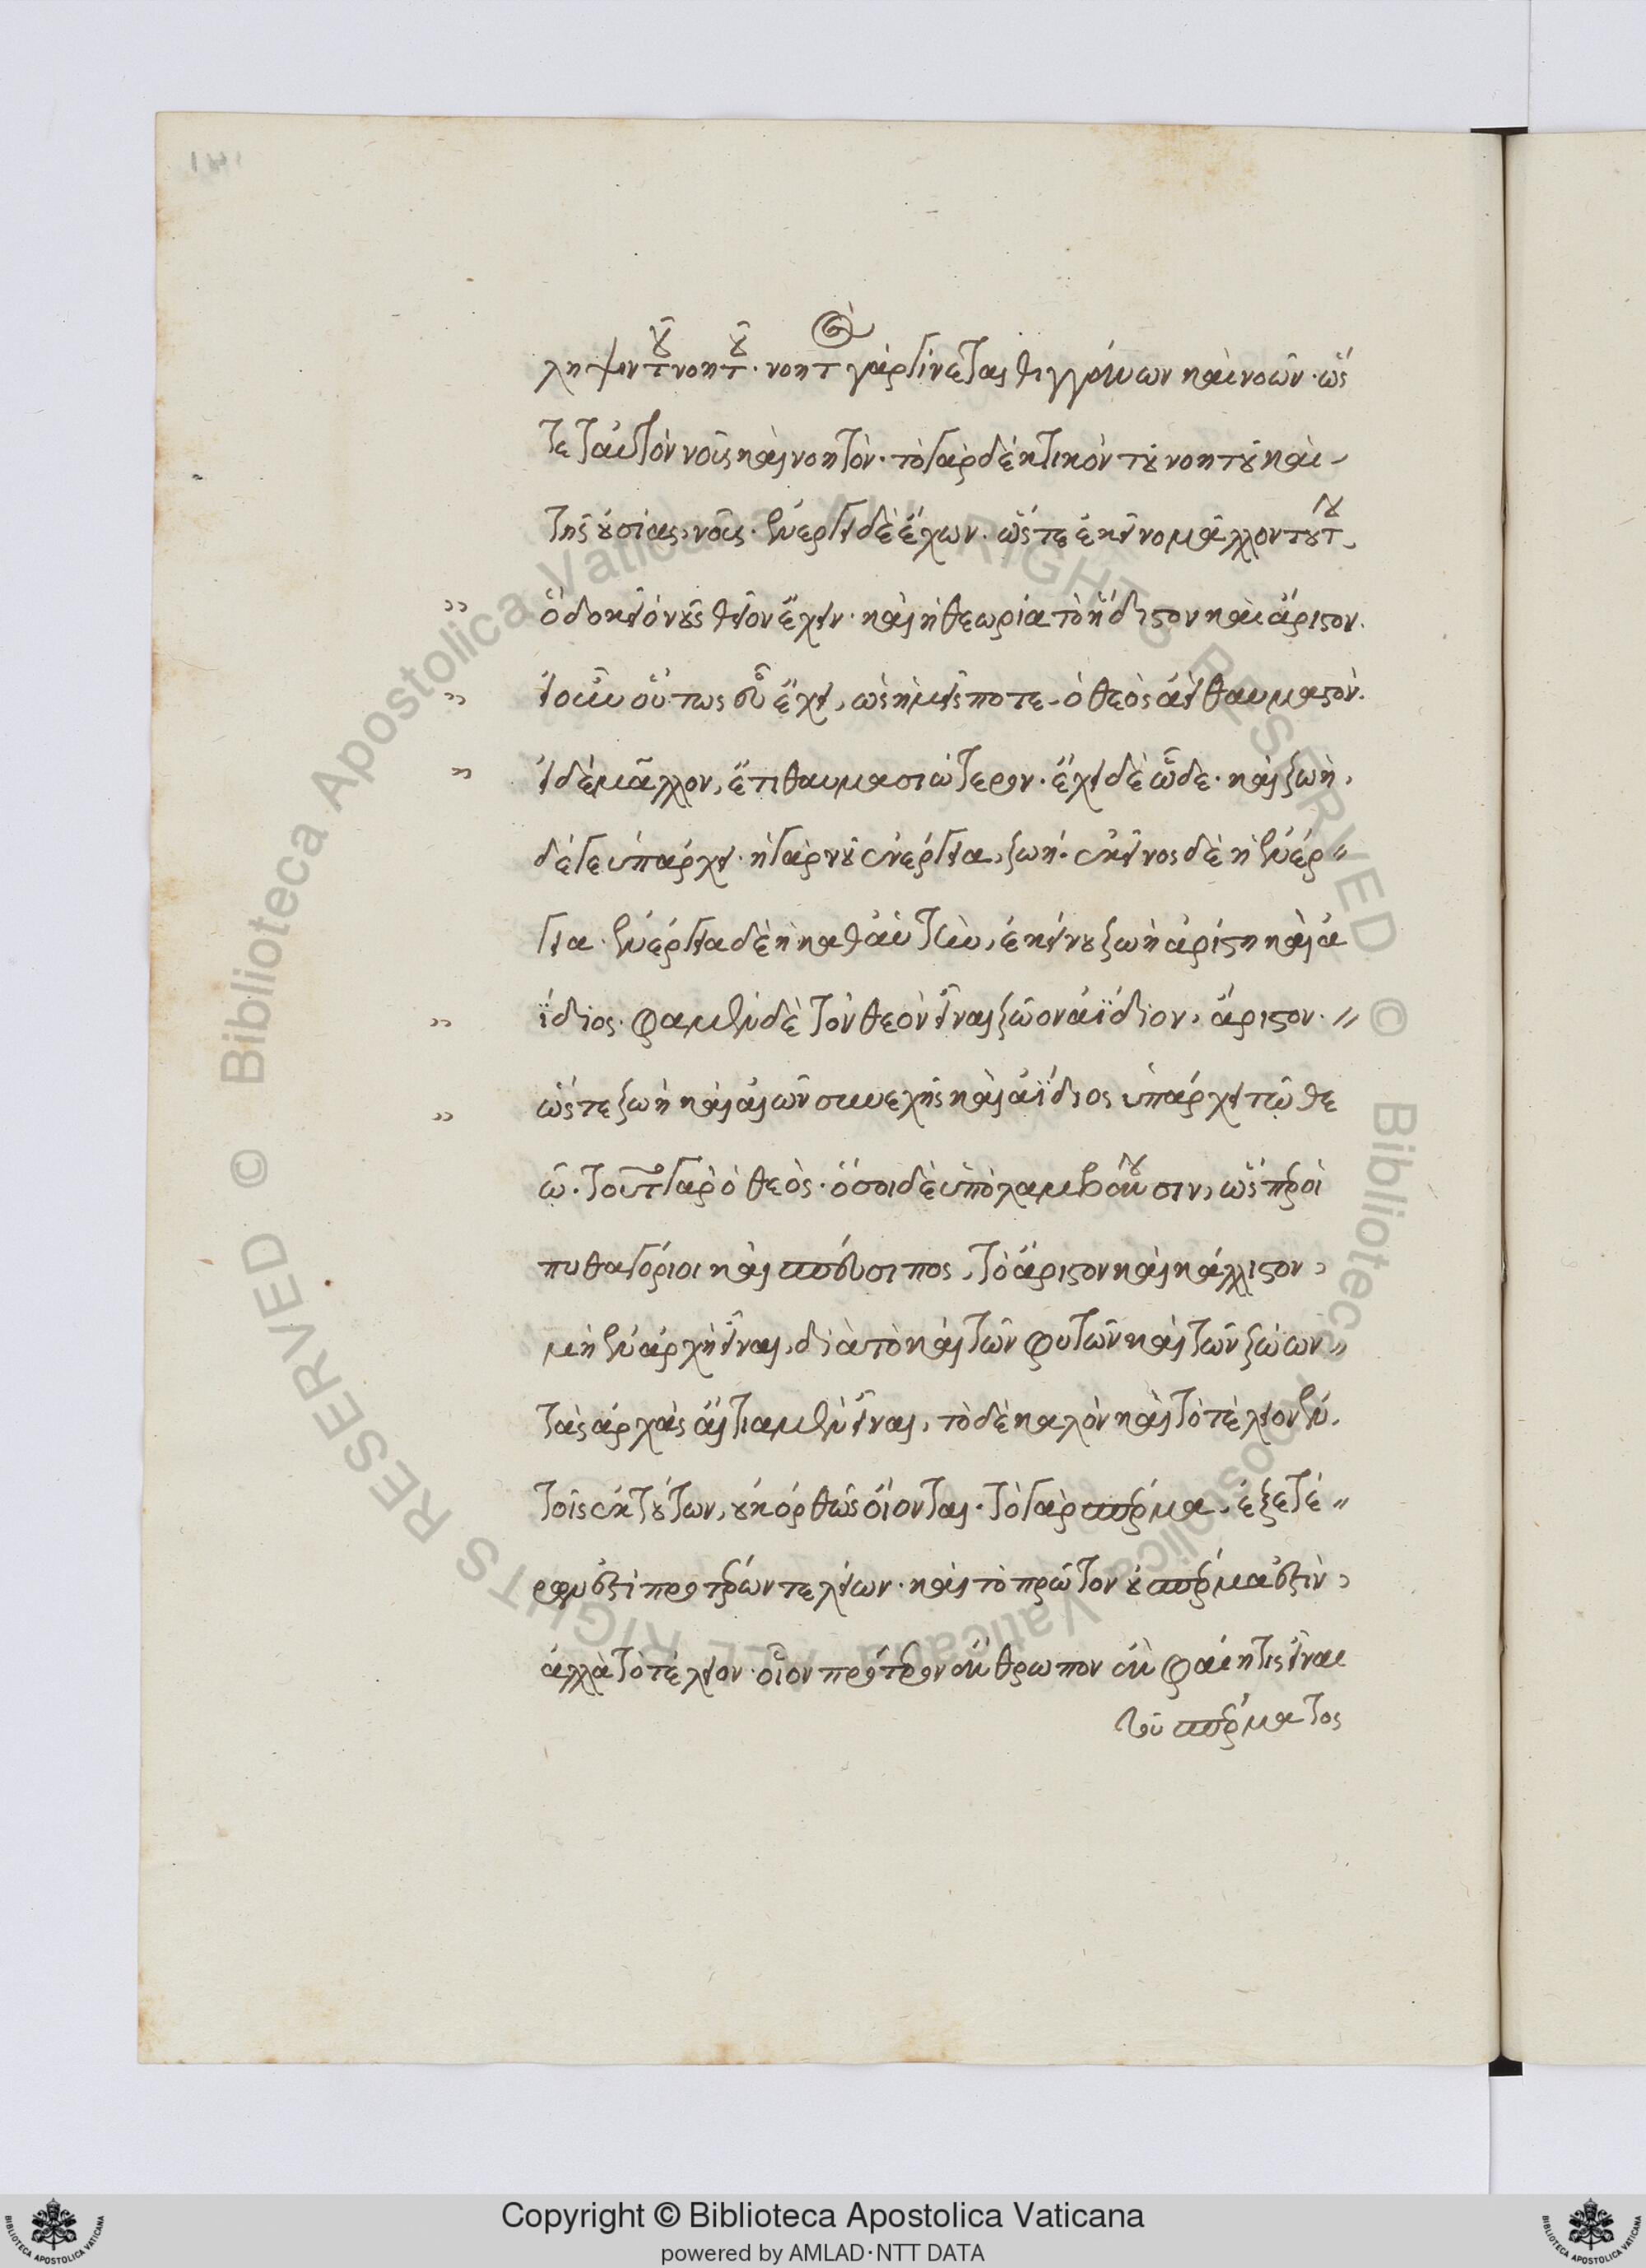 ληψιν τοῦ νοητοῦ· νοητὸς γὰρ γίνεται θιγγάνων καὶ νοῶν· ὥς
τε ταυτὸν νοῦς καὶ νοητὸν· τὸ γὰρ δεκτικὸν τοῦ νοητοῦ καὶ
τῆς οὐσίας, νοῦς· ἐνεργεῖ δὲ ἔχων. ὥστε ἐκεῖνο μᾶλλον τούτου
ὃ δοκεῖ ὁ νοῦς θεῖον ἔχειν· καὶ ἡ θεωρία τὸ ἥδιστον καὶ ἄριστον.
εἰ οὖν οὕτως εὖ ἔχει, ὡς ἡμεῖς ποτε, ὁ θεὸς ἀεὶ θαυμαστόν.
εἰ δὲ μᾶλλον, ἔτι θαυμασιώτερον. ἔχει δὲ ὧδε. καὶ ζωὴ,
δέ γε ὑπάρχει· ἡ γὰρ νοῦ ἐνέργεια, ζωή. ἐκεῖνος δὲ ἡ ἐνέρ
γεια· ἐνέργεια δὲ ἡ καθ' αὑτὴν, ἐκείνου ζωὴ ἀρίστη καὶ ἀ
ΐδιος. φαμὲν δὲ τὸν θεὸν εἶναι ζῶον ἀΐδιον, ἄριστον.
ὥστε ζωὴ καὶ αἰὼν συνεχὴς καὶ ἀΐδιος ὑπάρχει τῷ θε
ῷ. τοῦτο γὰρ ὁ θεός. ὅσοι δὲ ὑπολαμβάνουσιν, ὥσπερ οἱ
πυθαγόριοι καὶ σπεύσιπος, τὸ ἄριστον καὶ κάλλιστον,
μὴ ἐν ἀρχῇ εἶναι, διὰ τὸ καὶ τῶν φυτῶν καὶ τῶν ζώων
τὰς ἀρχὰς αἴτια μὲν εἶναι, τὸ δὲ καλὸν καὶ τὸ τέλειον ἐν
τοῖς ἐκ τούτων, οὐκ ὀρθῶς οἴονται. τὸ γὰρ σπέρμα, ἐξ ἑτέ
ρων ἐστὶ προτέρων τελείων. καὶ τὸ πρῶτον οὐ σπέρμα ἐστὶν,
ἀλλὰ τὸ τέλειον. οἷον πρότερον ἄνθρωπον ἂν φαίη τις εἶναι
τοῦ σπέρματος
Copyright © Biblioteca Apostolica Vaticana
powered by AMLAD·NTT DATA
© Biblioteca Apostolica Vaticana ALL RIGHTS RESERVED
© Biblioteca Apostolica Vaticana ALL RIGHTS RESERVED
BIBLIOTECA APOSTOLICA VATICANA
BIBLIOTECA APOSTOLICA VATICANA